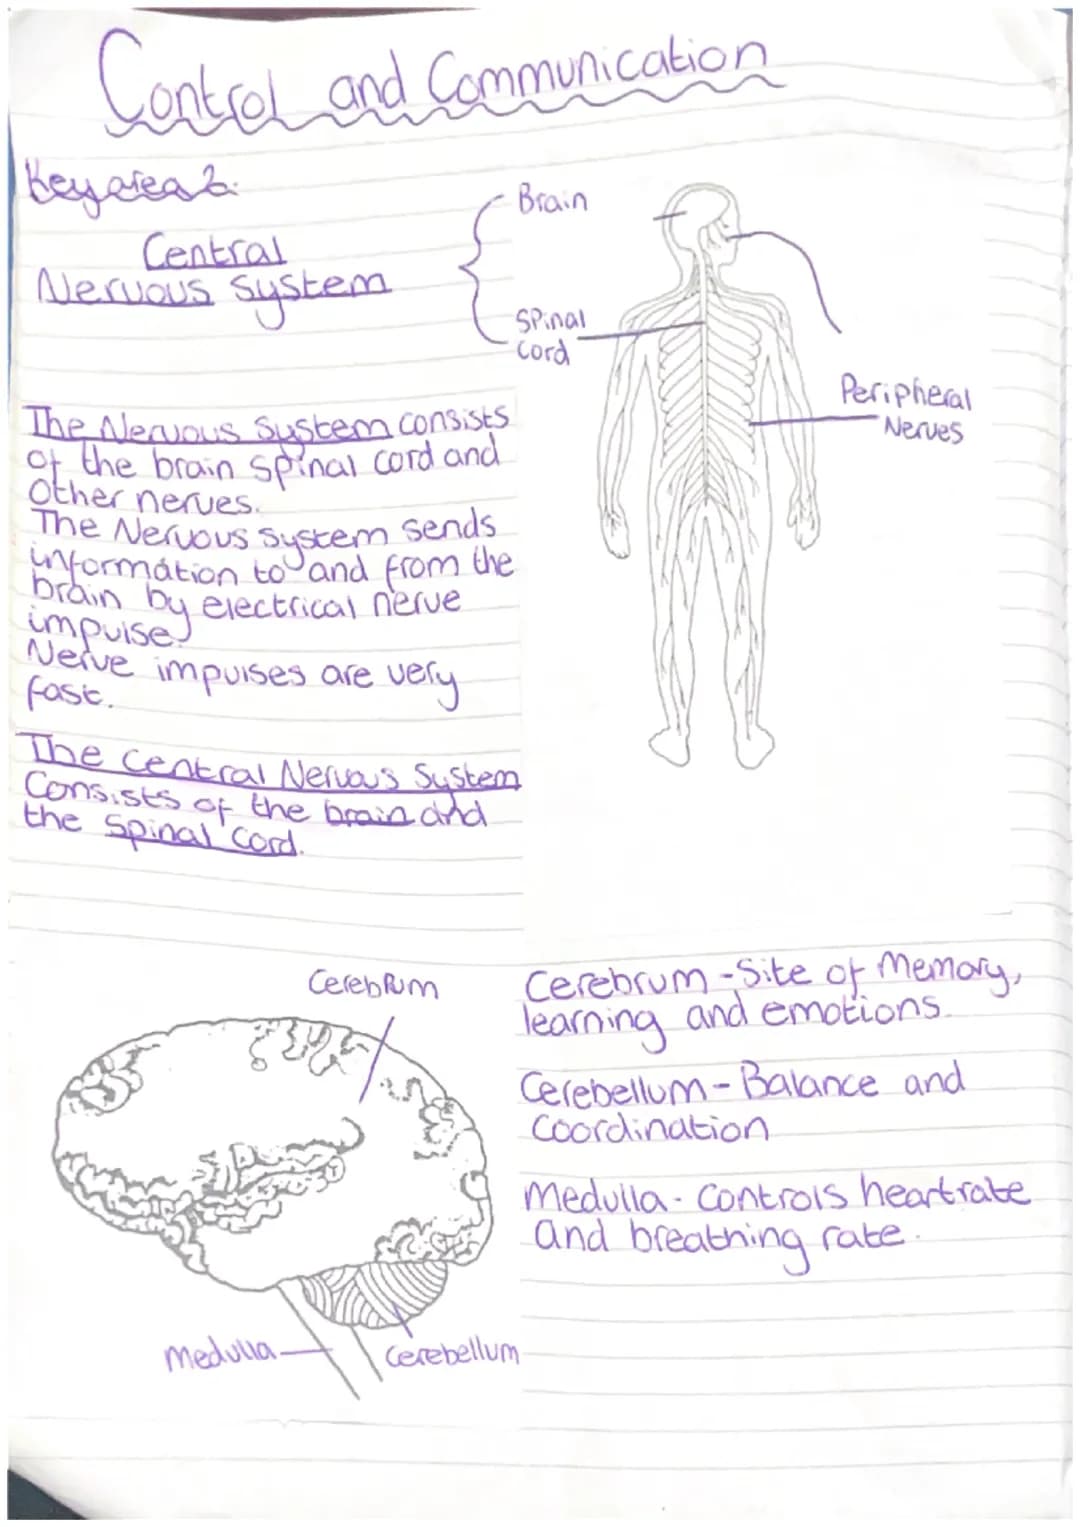 Control and Communication
Key area 2:
Central
Nervous System
Brain
Spinal
Cord
Peripheral
Nerves
The Nervous System consists
of the brain spinal cord and
Other nerves.
The Nervous System sends
information to and from the
brain by electrical nerve
impulse.
Nerve impulses are very
fast.
The Central Nervous System
Consists of the brain and
the Spinal Cord.
Cerebrum
Medulla
Cerebellum
Cerebrum - Site of Memory,
learning and emotions.
Cerebellum - Balance and
Coordination
Medulla - Controls heartrate
and breathing rate.